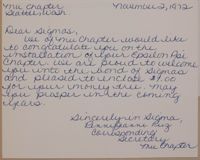 Mu Chapter
Seattle, Wash
November 2, 1972
Dear Sigmas,
We of Mu Chapter would like
to congratulate you on the
installation of your Epsilon Psi
Chapter. We are proud to welcome
you into the bond of Sigmas
and pleased to include $1.00
for your money tree. May
you prosper in the coming
years.
Sincerely in Sigma,
Corresponding
Secretary
Mu Chapter